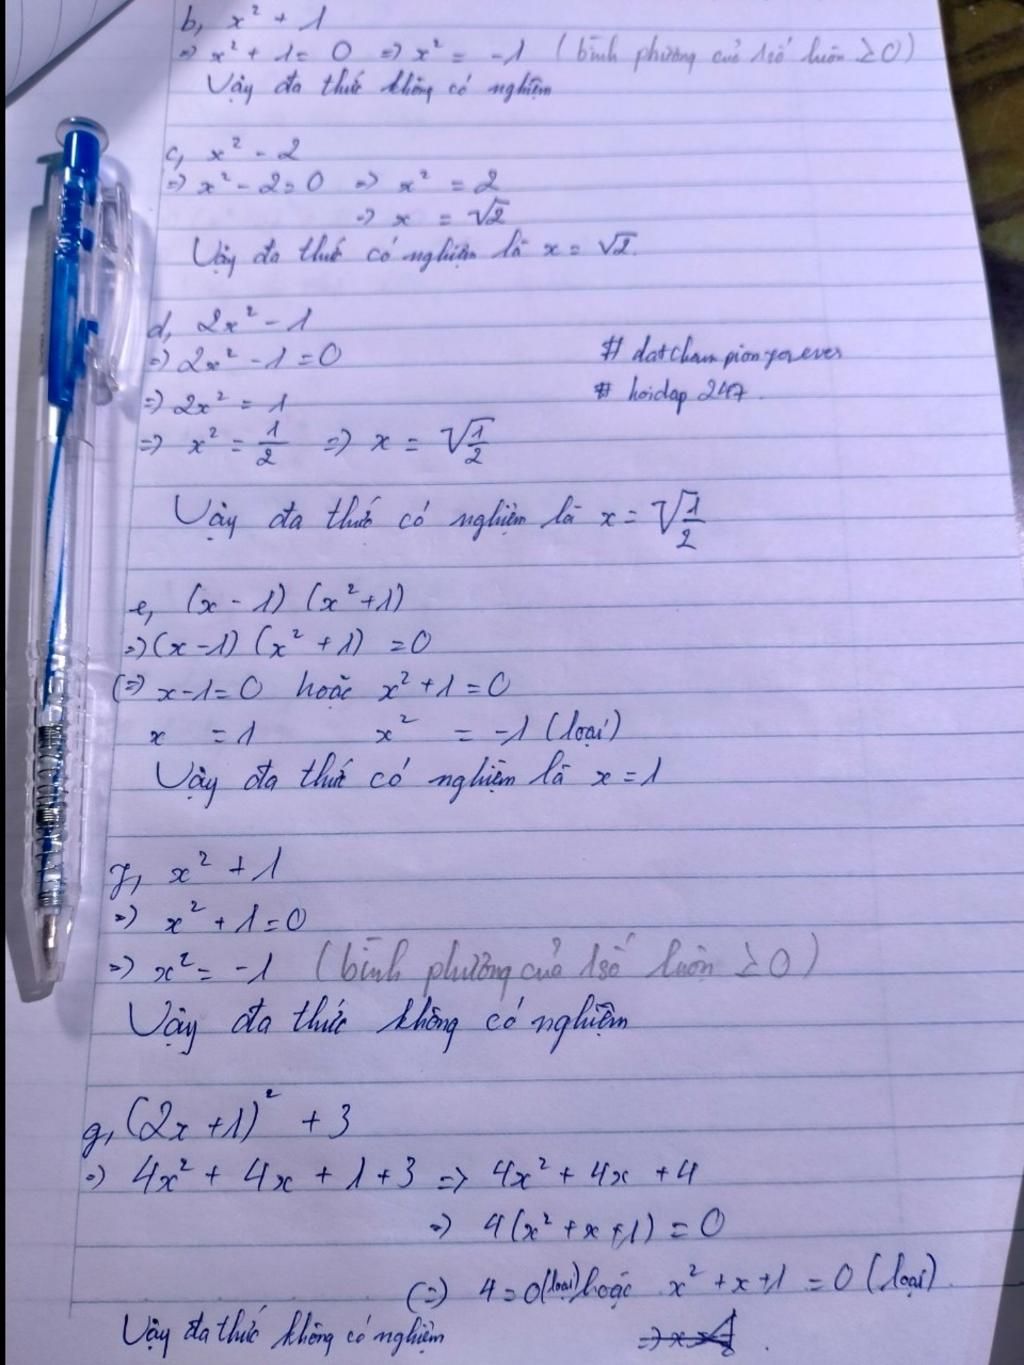 b, x² + 1
=> x² + 1 = 0 => x² = -1 (bình phương của 1 số luôn ≥ 0)
Vậy đa thức không có nghiệm
c, x² - 2
=> x² - 2 = 0 => x² = 2
=> x = √2
Vậy đa thức có nghiệm là x = √2.
d, 2x² - 1
=> 2x² - 1 = 0
# datchampionforever
=> 2x² = 1
# hoidap 247.
=> x² = 1/2 => x = √1/2
Vậy đa thức có nghiệm là x = √1/2
e, (x - 1) (x² + 1)
=> (x - 1) (x² + 1) = 0
(=> x - 1 = 0 hoặc x² + 1 = 0
x = 1 x² = -1 (loại)
Vậy đa thức có nghiệm là x = 1
f, x² + 1
=> x² + 1 = 0
=> x² = -1 (bình phương của 1 số luôn ≥ 0)
Vậy đa thức không có nghiệm
g, (2x + 1)² + 3
=> 4x² + 4x + 1 + 3 => 4x² + 4x + 4
=> 4(x² + x + 1) = 0
(=> 4 = 0 (loại) hoặc x² + x + 1 = 0 (loại)
Vậy đa thức không có nghiệm